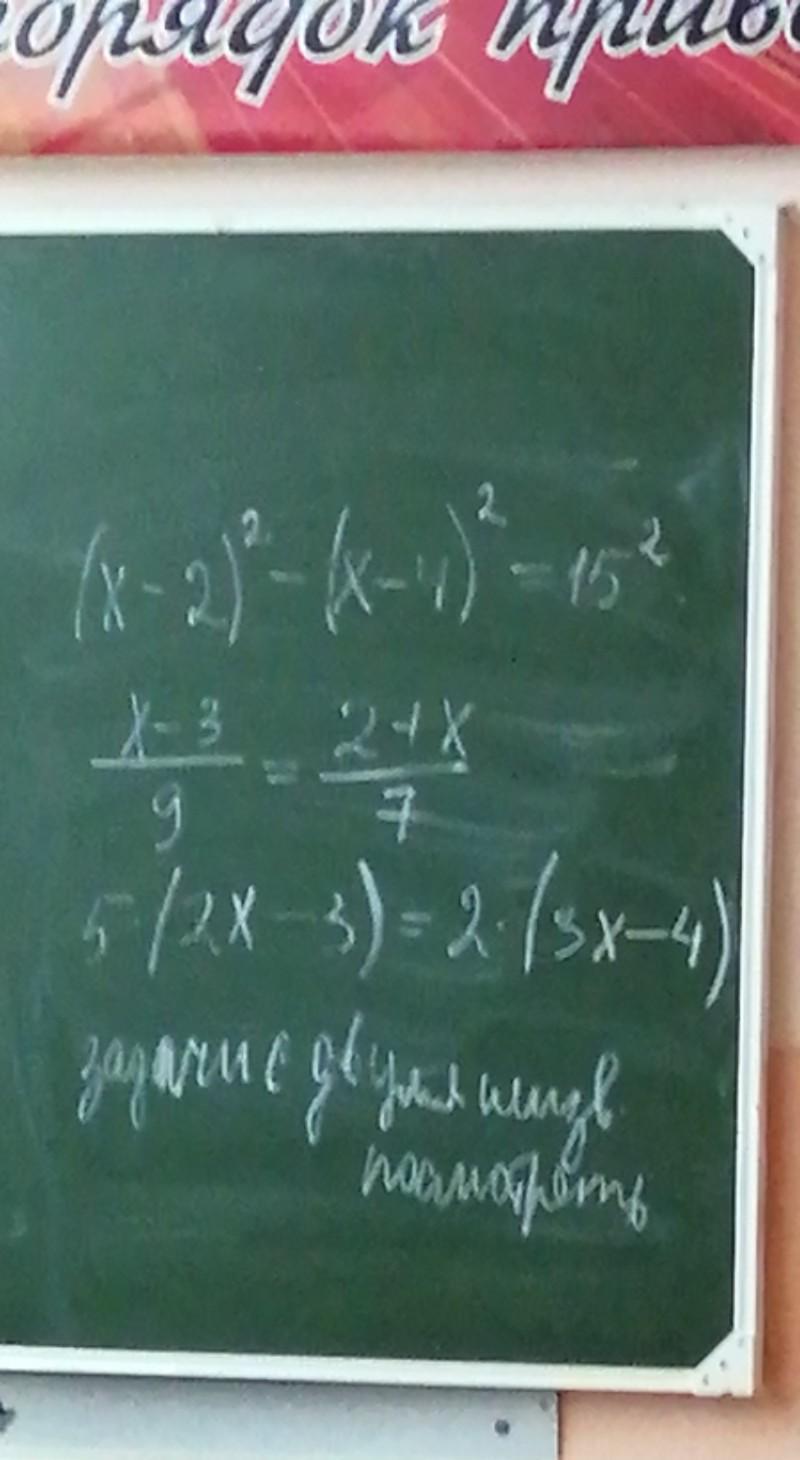 порядок приво
(x-2)² - (x-4)² = 15²
x-3/9 = 2+x/7
5·(2x-3) = 2·(3x-4)
задачи с двумя неизв.
посмотреть